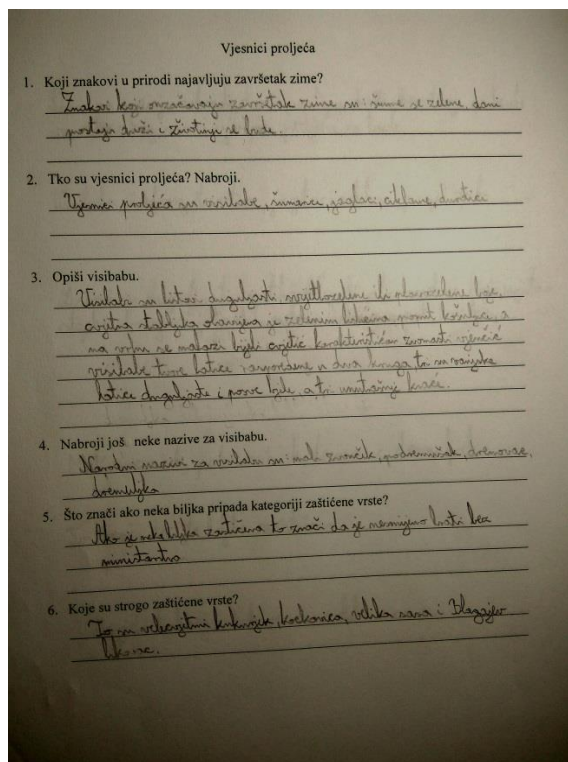 Vjesnici proljeća
1. Koji znakovi u prirodi najavljuju završetak zime?
Znakovi koji označavaju završetak zime su: šume se zelene, dani
postaju duži i životinje se bude.
2. Tko su vjesnici proljeća? Nabroji.
Vjesnici proljeća su visibabe, šumarice, jaglaci, ciklame,
3. Opiši visibabu.
Visibabe su listovi duguljasti, svijetlozelene ili plavozelene boje,
cvjetna stabljika obavijena je zelenim listovima poput košuljice, a
na vrhu se nalazi bijeli cvjetić karakterističan zvonasti vjenčić
visibabe tvore latice raspoređene u dva kruga, tri su vanjske
latice duguljaste i posve bijele, a tri unutašnje kraće.
4. Nabroji još neke nazive za visibabu.
Narodni nazivi za visibabu su: mali zvončik, podremušak, dremovac,
dremuljka
5. Što znači ako neka biljka pripada kategoriji zaštićene vrste?
Ako je neka biljka zaštićena to znači da je nesmijemo brati bez
ministarstva
6. Koje su strogo zaštićene vrste?
To su velecvjetni kukurijek, kockavica, velika sasa i Blagajev
likovac.